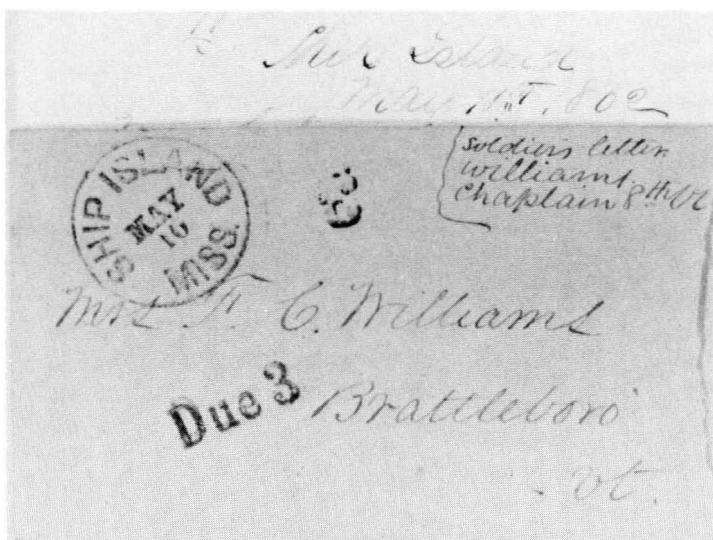 Ship Island
May 1st, 1862
SHIP ISLAND MISS.
MAY
10
3
Soldiers letter
Williams
Chaplain 8th Vt
Mrs F. C. Williams
Due 3
Brattleboro
Vt.